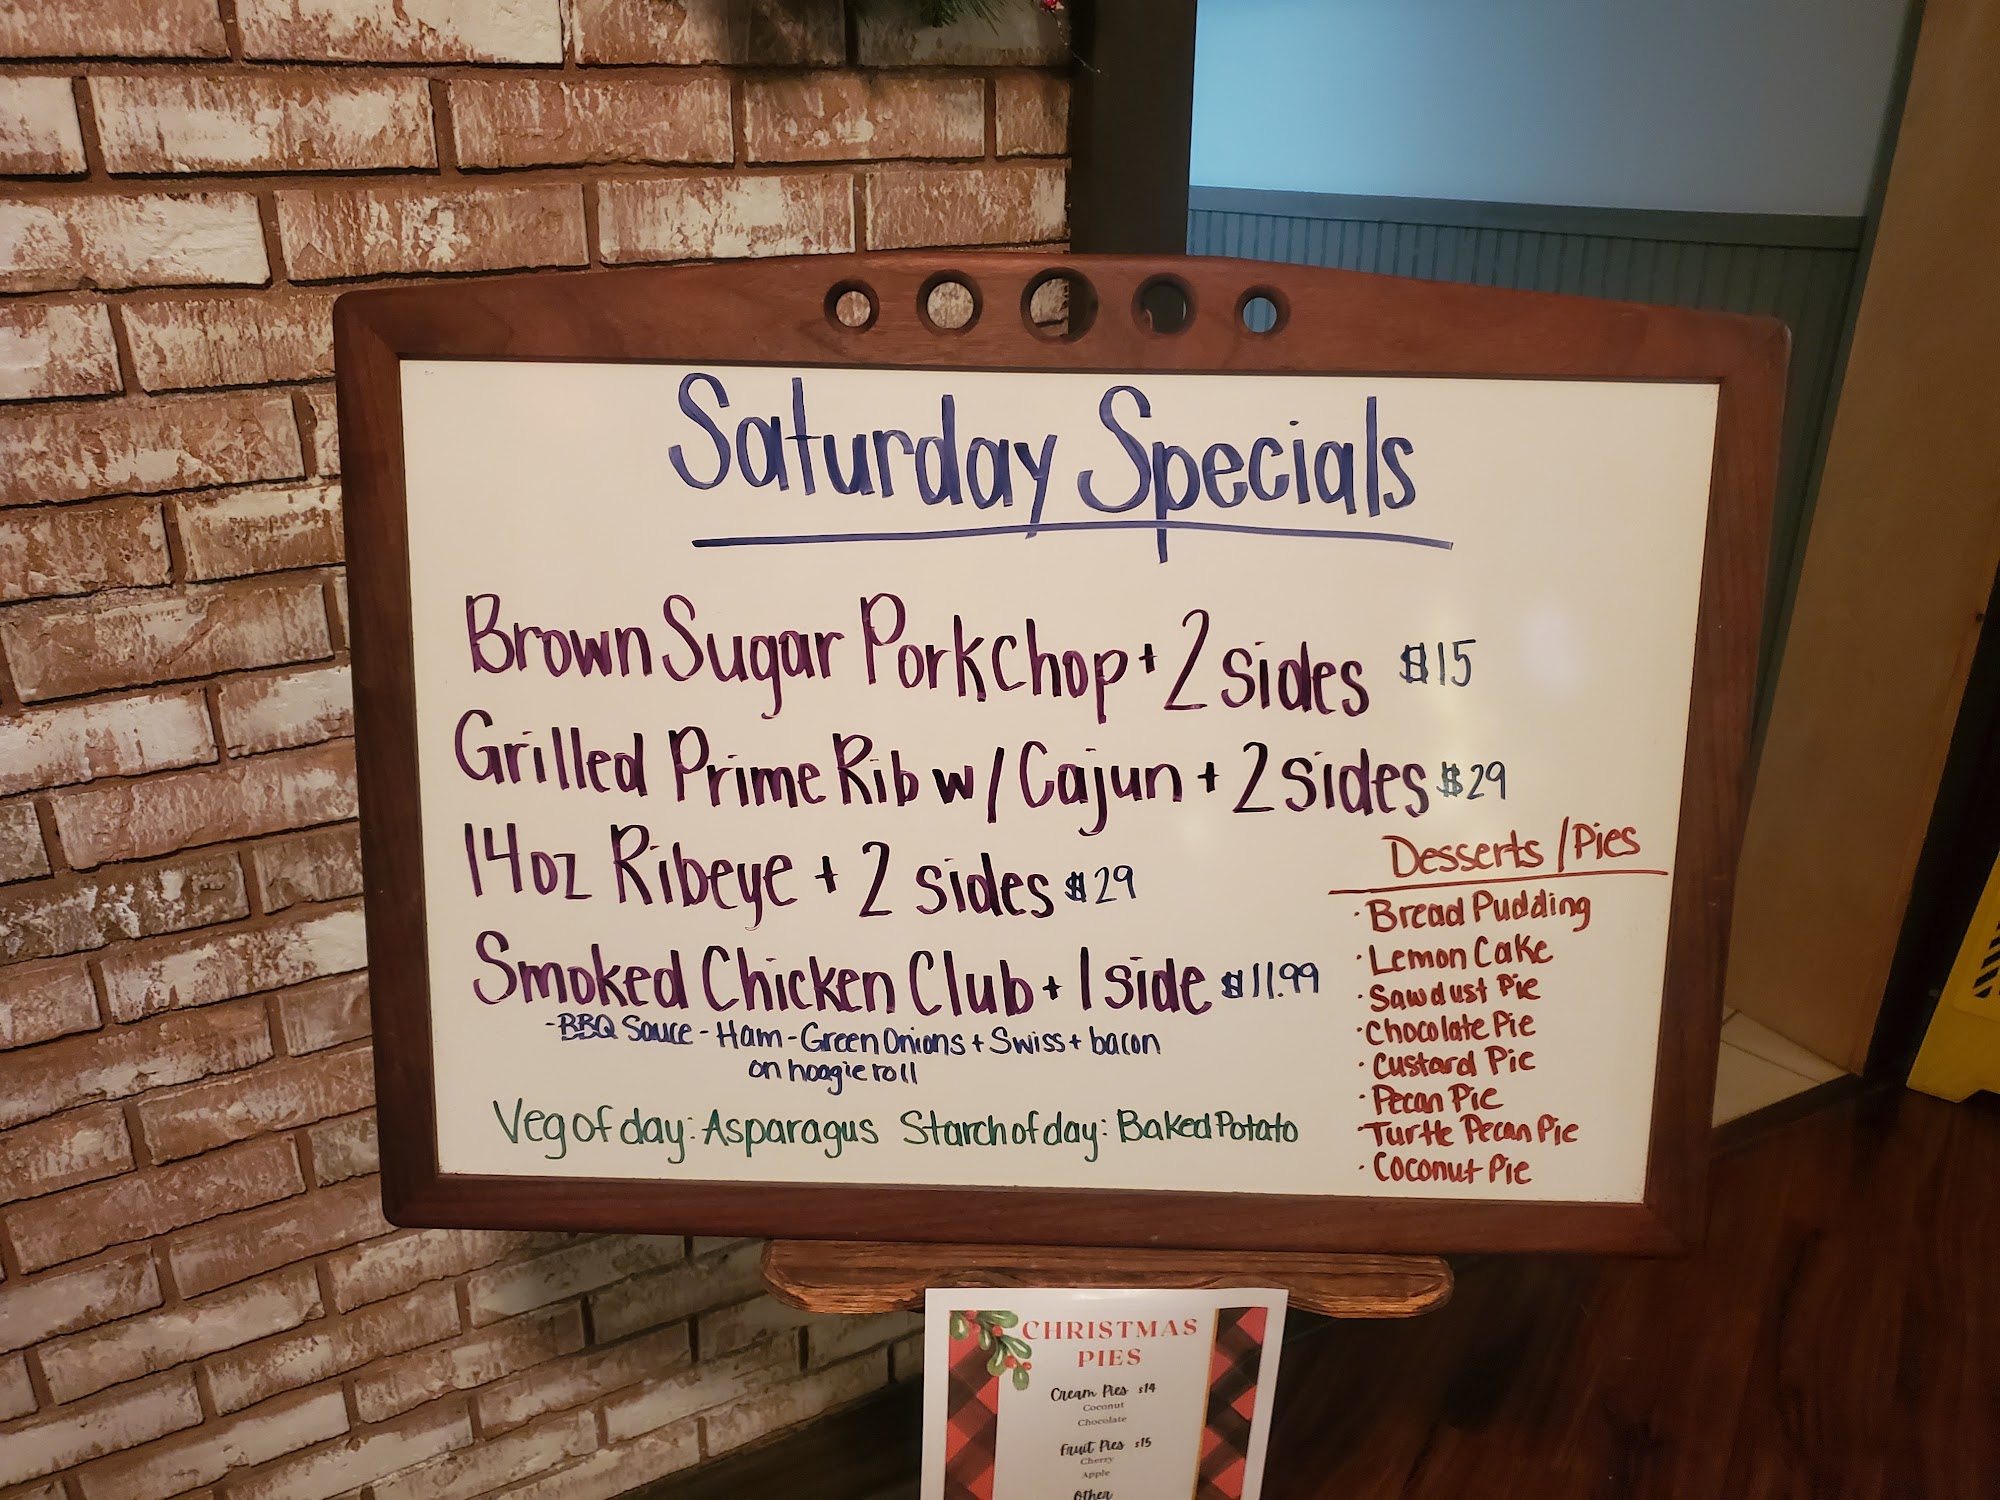 Saturday Specials
Brown Sugar Pork Chop + 2 sides $15
Grilled Prime Rib w/ Cajun + 2 sides $29
14oz Ribeye + 2 sides $29
Smoked Chicken Club + 1 side $11.99
- BBQ Sauce - Ham - Green Onions + Swiss + bacon
on hoagie roll
Veg of day: Asparagus Starch of day: Baked Potato
Desserts / Pies
· Bread Pudding
· Lemon Cake
· Sawdust Pie
· Chocolate Pie
· Custard Pie
· Pecan Pie
· Turtle Pecan Pie
· Coconut Pie
CHRISTMAS
PIES
Cream Pies $14
Coconut
Chocolate
Fruit Pies $15
Cherry
Apple
Other